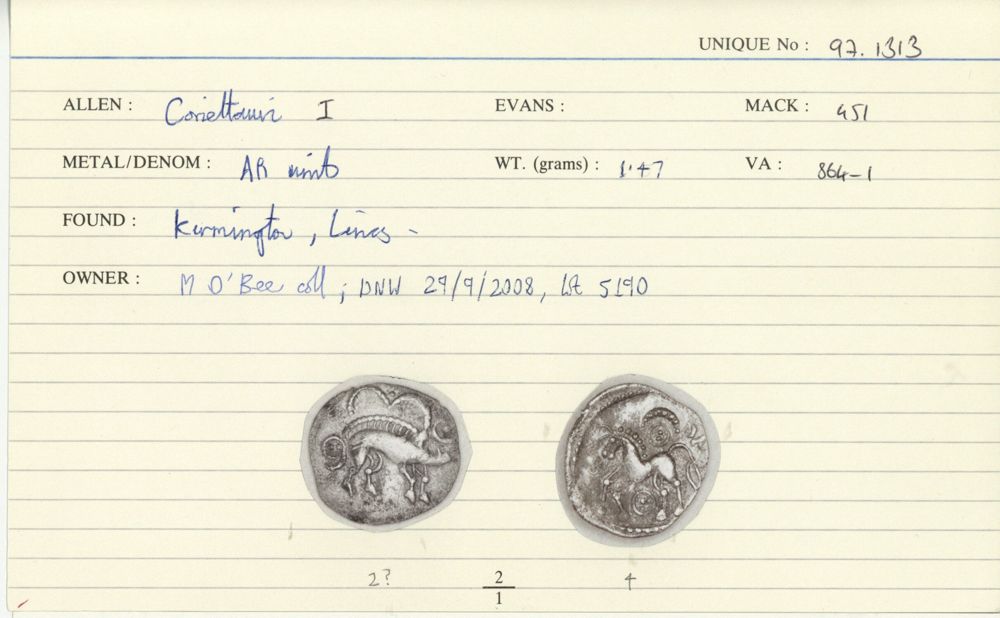 UNIQUE No : 97.1313
ALLEN : Corieltauvi I EVANS : MACK : 451
METAL/DENOM : AR unit WT. (grams) : 1.47 VA : 864-1
FOUND : Kirmington, Lincs -
OWNER : M O'Bee coll ; DNW 29/9/2008, Lot 5190
2? 2/1 4